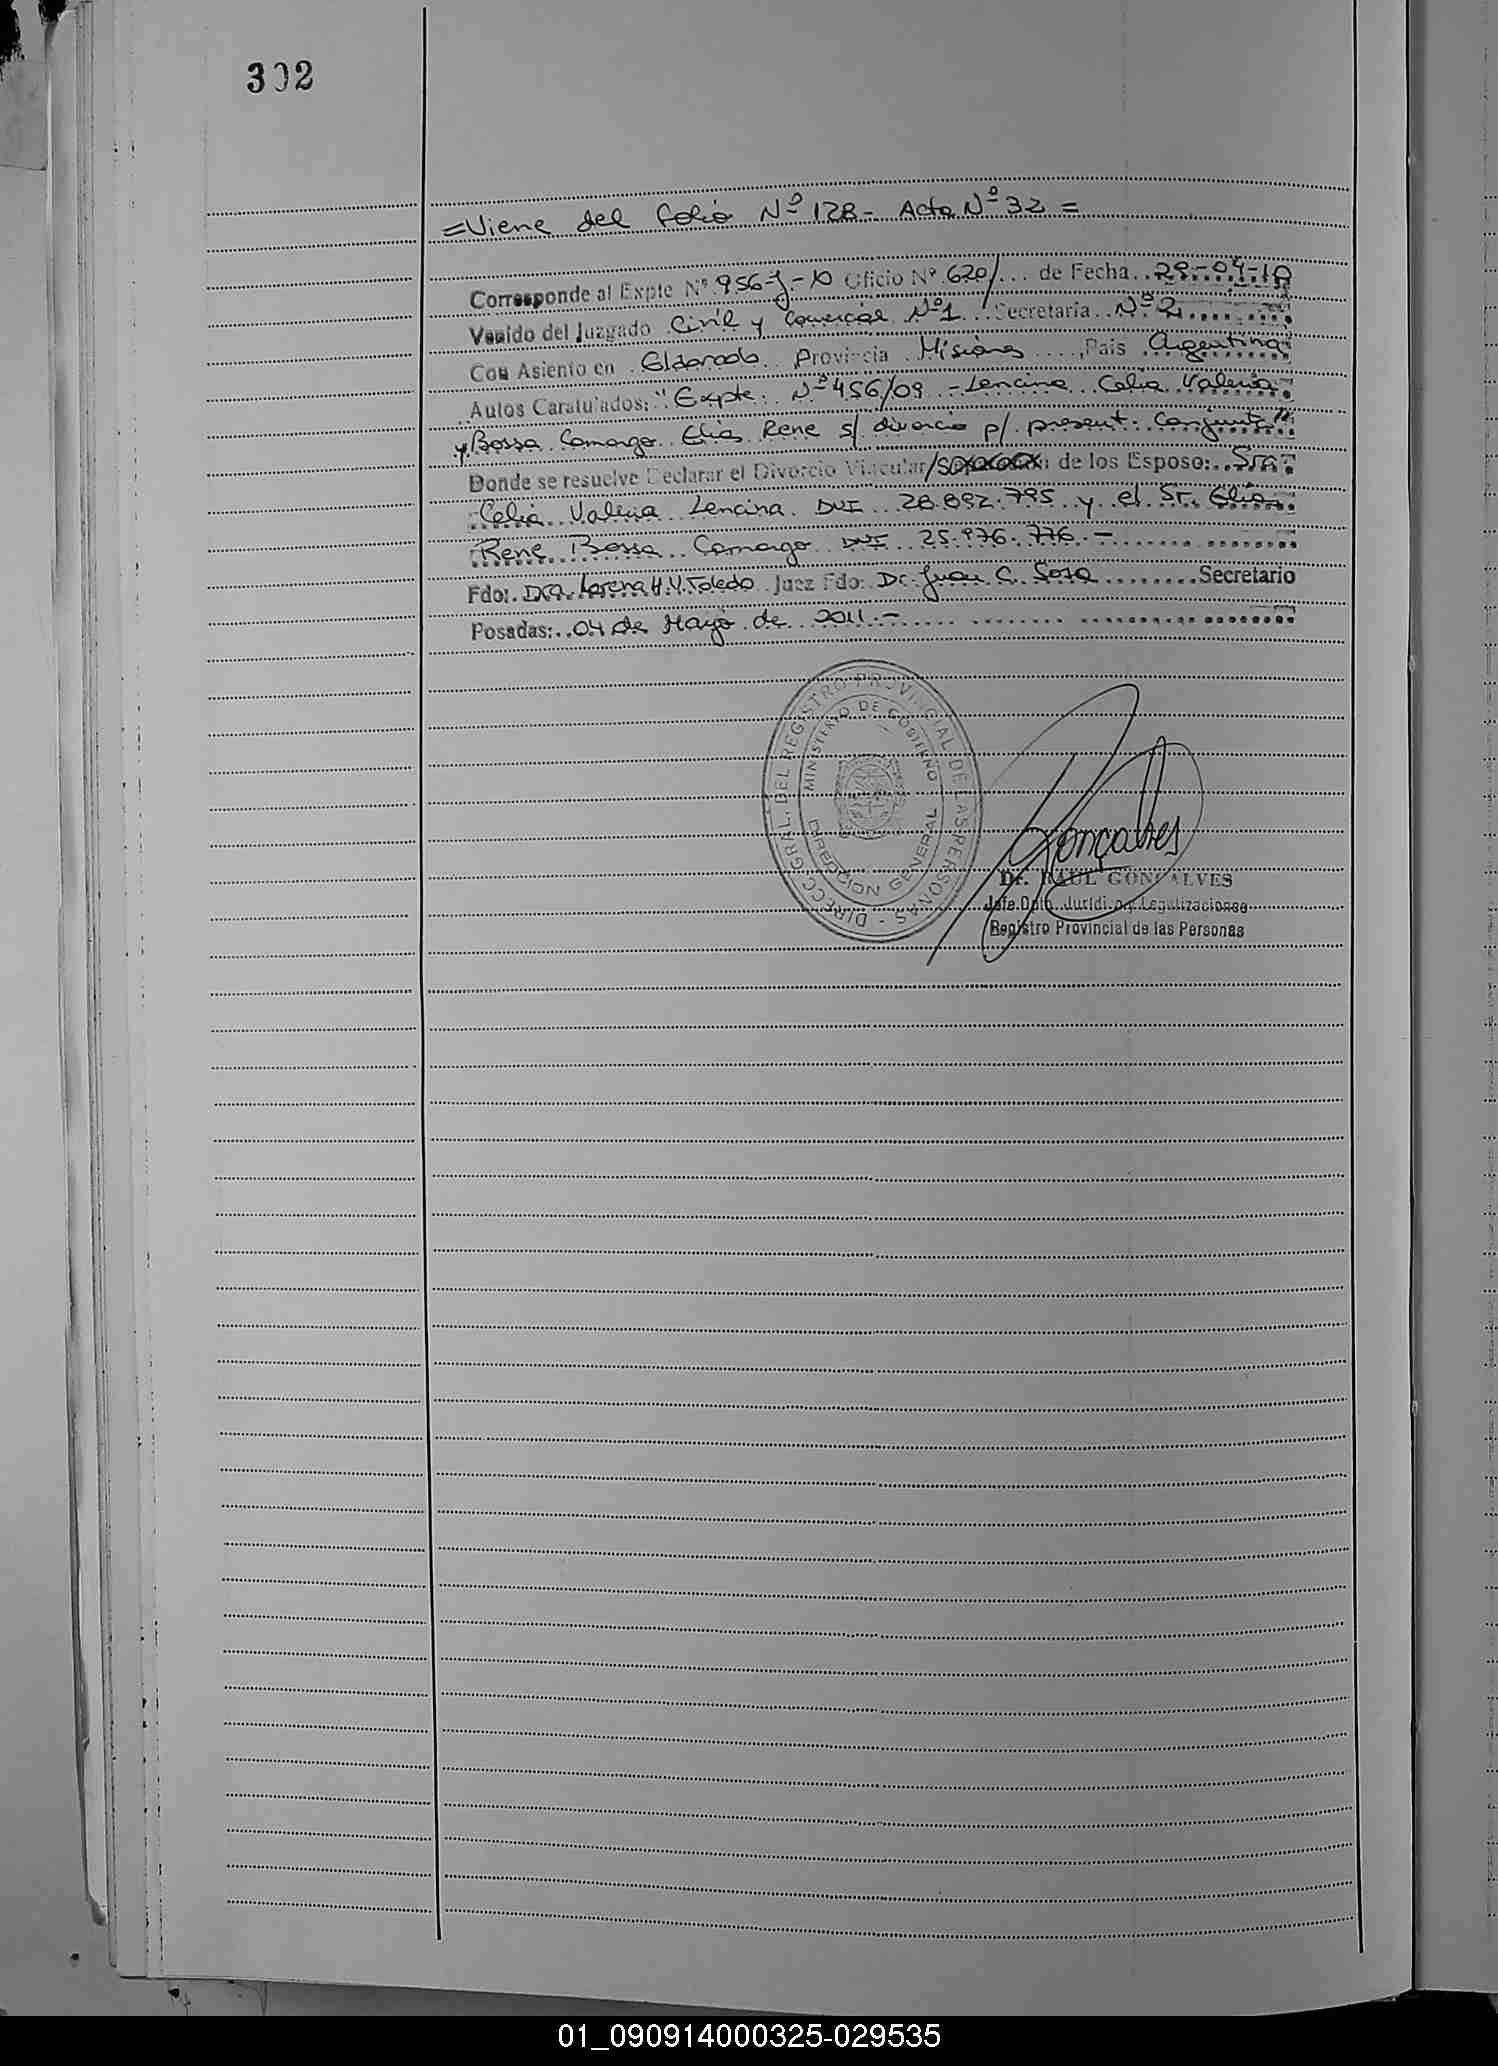 302
=Viene del folio Nº 128- Acta Nº 32 =
Corresponde al Expte Nº 956-J-10 Oficio Nº 620/... de Fecha 29-04-10
Venido del Juzgado Civil y Comercial Nº1 Secretaria Nº 2
Con Asiento en Eldorado Provincia Misiones, Pais Argentina
Autos Caratulados: "Expte. Nº 456/09 -Lencina Celia Valeria
y Bossa Camargo Elias Rene s/ divorcio p/ present. Conjunta"
Donde se resuelve Declarar el Divorcio Vincular/ de los Esposo: Sra.
Celia Valeria Lencina DNI 28.892.795 y el Sr. Elias
Rene Bossa Camargo DNI 25.976.776.-
Fdo: Dra. Lorena H.Y. Toledo Juez Fdo: Dr. Juan C. Sosa Secretario
Posadas: 04 de Mayo de 2011.-
DIRECC. GRAL. DEL REGISTRO PROVINCIAL DE LAS PERSONAS -
MINISTERIO DE GOBIERNO
DIRECCION GENERAL
Gonçalves
Dr. RAUL GONÇALVES
Jefe Dpto. Juridico y Legalizaciones
Registro Provincial de las Personas
01_090914000325-029535